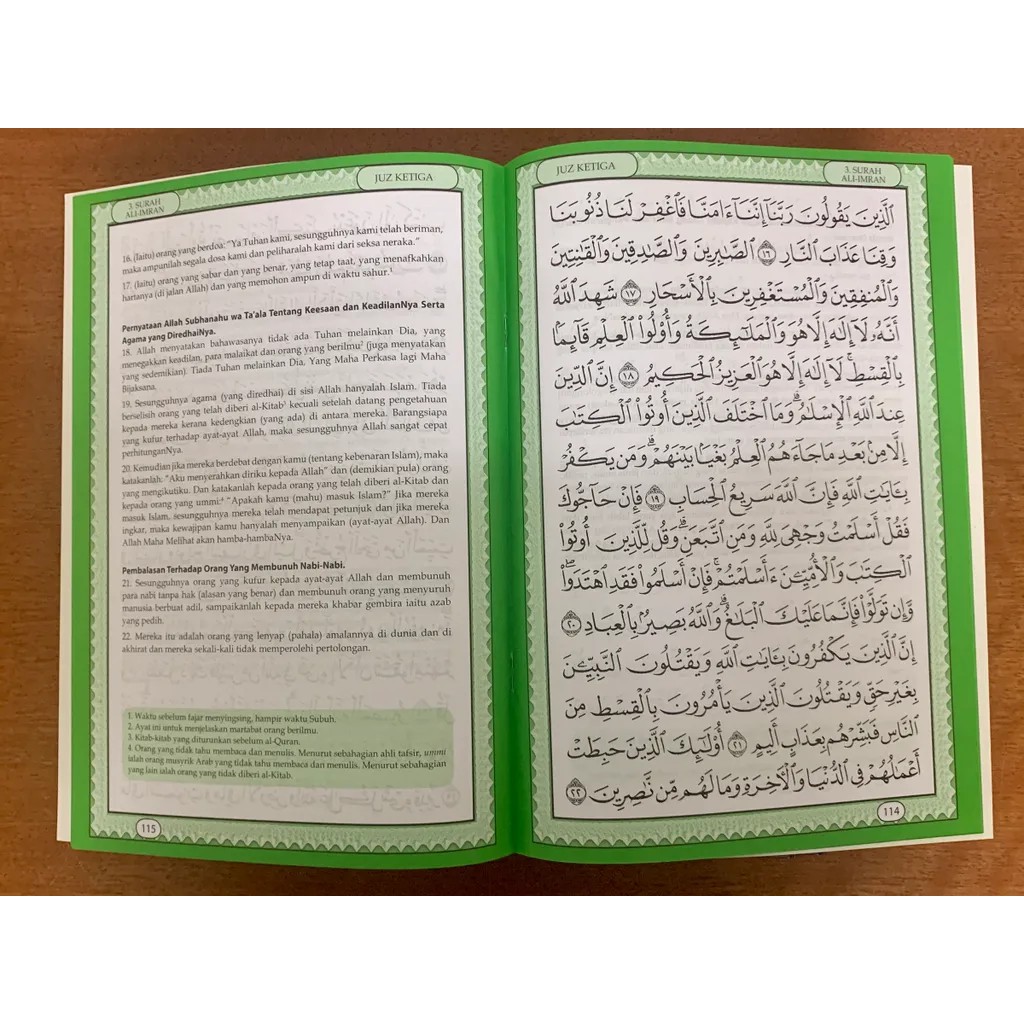 JUZ KETIGA
3. SURAH
ALI-IMRAN
ٱلَّذِينَ يَقُولُونَ رَبَّنَآ إِنَّنَآ ءَامَنَّا فَٱغْفِرْ لَنَا ذُنُوبَنَا
وَقِنَا عَذَابَ ٱلنَّارِ ١٦ ٱلصَّٰبِرِينَ وَٱلصَّٰدِقِينَ وَٱلْقَٰنِتِينَ
وَٱلْمُنفِقِينَ وَٱلْمُسْتَغْفِرِينَ بِٱلْأَسْحَارِ ١٧ شَهِدَ ٱللَّهُ
أَنَّهُۥ لَآ إِلَٰهَ إِلَّا هُوَ وَٱلْمَلَٰٓئِكَةُ وَأُو۟لُوا۟ ٱلْعِلْمِ قَآئِمًۢا
بِٱلْقِسْطِ ۚ لَآ إِلَٰهَ إِلَّا هُوَ ٱلْعَزِيزُ ٱلْحَكِيمُ ١٨ إِنَّ ٱلدِّينَ
عِندَ ٱللَّهِ ٱلْإِسْلَٰمُ ۗ وَمَا ٱخْتَلَفَ ٱلَّذِينَ أُوتُوا۟ ٱلْكِتَٰبَ
إِلَّا مِنۢ بَعْدِ مَا جَآءَهُمُ ٱلْعِلْمُ بَغْيًۢا بَيْنَهُمْ ۗ وَمَن يَكْفُرْ
بِـَٔايَٰتِ ٱللَّهِ فَإِنَّ ٱللَّهَ سَرِيعُ ٱلْحِسَابِ ١٩ فَإِنْ حَآجُّوكَ
فَقُلْ أَسْلَمْتُ وَجْهِىَ لِلَّهِ وَمَنِ ٱتَّبَعَنِ ۗ وَقُل لِّلَّذِينَ أُوتُوا۟
ٱلْكِتَٰبَ وَٱلْأُمِّيِّـۧنَ ءَأَسْلَمْتُمْ ۚ فَإِنْ أَسْلَمُوا۟ فَقَدِ ٱهْتَدَوا۟ ۖ
وَّإِن تَوَلَّوْا۟ فَإِنَّمَا عَلَيْكَ ٱلْبَلَٰغُ ۗ وَٱللَّهُ بَصِيرٌۢ بِٱلْعِبَادِ ٢٠
إِنَّ ٱلَّذِينَ يَكْفُرُونَ بِـَٔايَٰتِ ٱللَّهِ وَيَقْتُلُونَ ٱلنَّبِيِّـۧنَ
بِغَيْرِ حَقٍّ وَيَقْتُلُونَ ٱلَّذِينَ يَأْمُرُونَ بِٱلْقِسْطِ مِنَ
ٱلنَّاسِ فَبَشِّرْهُم بِعَذَابٍ أَلِيمٍ ٢١ أُو۟لَٰٓئِكَ ٱلَّذِينَ حَبِطَتْ
أَعْمَٰلُهُمْ فِى ٱلدُّنْيَا وَٱلْـَٔاخِرَةِ وَمَا لَهُم مِّن نَّٰصِرِينَ ٢٢
114
3. SURAH
ALI-IMRAN
JUZ KETIGA
16. (Iaitu) orang yang berdoa: "Ya Tuhan kami, sesungguhnya kami telah beriman,
maka ampunilah segala dosa kami dan peliharalah kami dari seksa neraka."
17. (Iaitu) orang yang sabar dan yang benar, yang tetap taat, yang menafkahkan
hartanya (di jalan Allah) dan yang memohon ampun di waktu sahur.¹
Pernyataan Allah Subhanahu wa Ta'ala Tentang Keesaan dan KeadilanNya Serta
Agama yang DiredhaiNya.
18. Allah menyatakan bahawasanya tidak ada Tuhan melainkan Dia, yang
menegakkan keadilan, para malaikat dan orang yang berilmu² (juga menyatakan
yang sedemikian). Tiada Tuhan melainkan Dia, Yang Maha Perkasa lagi Maha
Bijaksana.
19. Sesungguhnya agama (yang diredhai) di sisi Allah hanyalah Islam. Tiada
berselisih orang yang telah diberi al-Kitab³ kecuali setelah datang pengetahuan
kepada mereka kerana kedengkian (yang ada) di antara mereka. Barangsiapa
yang kufur terhadap ayat-ayat Allah, maka sesungguhnya Allah sangat cepat
perhitunganNya.
20. Kemudian jika mereka berdebat dengan kamu (tentang kebenaran Islam), maka
katakanlah: "Aku menyerahkan diriku kepada Allah" dan (demikian pula) orang
yang mengikutiku. Dan katakanlah kepada orang yang telah diberi al-Kitab dan
kepada orang yang ummi:⁴ "Apakah kamu (mahu) masuk Islam?" Jika mereka
masuk Islam, sesungguhnya mereka telah mendapat petunjuk dan jika mereka
ingkar, maka kewajipan kamu hanyalah menyampaikan (ayat-ayat Allah). Dan
Allah Maha Melihat akan hamba-hambaNya.
Pembalasan Terhadap Orang Yang Membunuh Nabi-Nabi.
21. Sesungguhnya orang yang kufur kepada ayat-ayat Allah dan membunuh
para nabi tanpa hak (alasan yang benar) dan membunuh orang yang menyuruh
manusia berbuat adil, sampaikanlah kepada mereka khabar gembira iaitu azab
yang pedih.
22. Mereka itu adalah orang yang lenyap (pahala) amalannya di dunia dan di
akhirat dan mereka sekali-kali tidak memperolehi pertolongan.
1. Waktu sebelum fajar menyingsing, hampir waktu Subuh.
2. Ayat ini untuk menjelaskan martabat orang berilmu.
3. Kitab-kitab yang diturunkan sebelum al-Quran.
4. Orang yang tidak tahu membaca dan menulis. Menurut sebahagian ahli tafsir, ummi
ialah orang musyrik Arab yang tidak tahu membaca dan menulis. Menurut sebahagian
yang lain ialah orang yang tidak diberi al-Kitab.
115